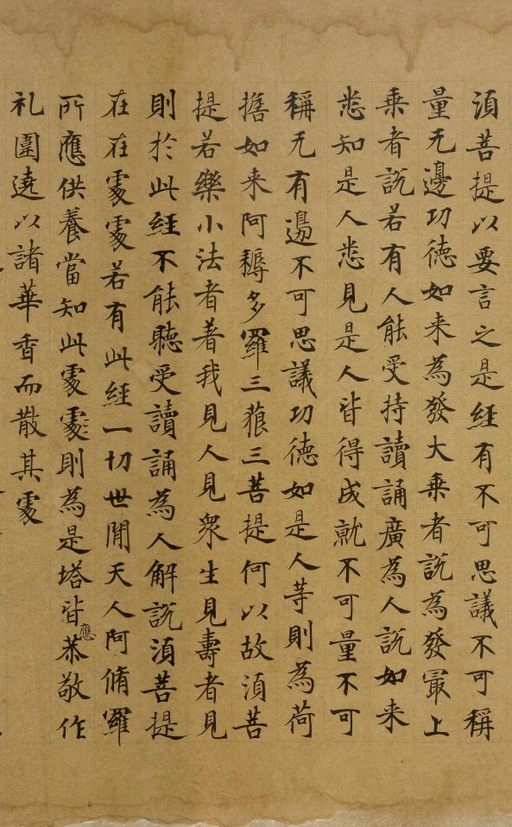 湏菩提以要言之是經有不可思議不可稱
量无邊功德如来為發大乗者說為發冣上
乗者說若有人能受持讀誦廣為人說如来
悉知是人悉見是人皆得成就不可量不可
稱无有邊不可思議功德如是人等則為荷
擔如来阿耨多羅三藐三菩提何以故湏菩
提若樂小法者著我見人見衆生見壽者見
則於此經不能聽受讀誦為人解說湏菩提
在在處處若有此經一切世間天人阿脩羅
所應供養當知此處處則為是塔皆應恭敬作
礼圍遶以諸華香而散其處